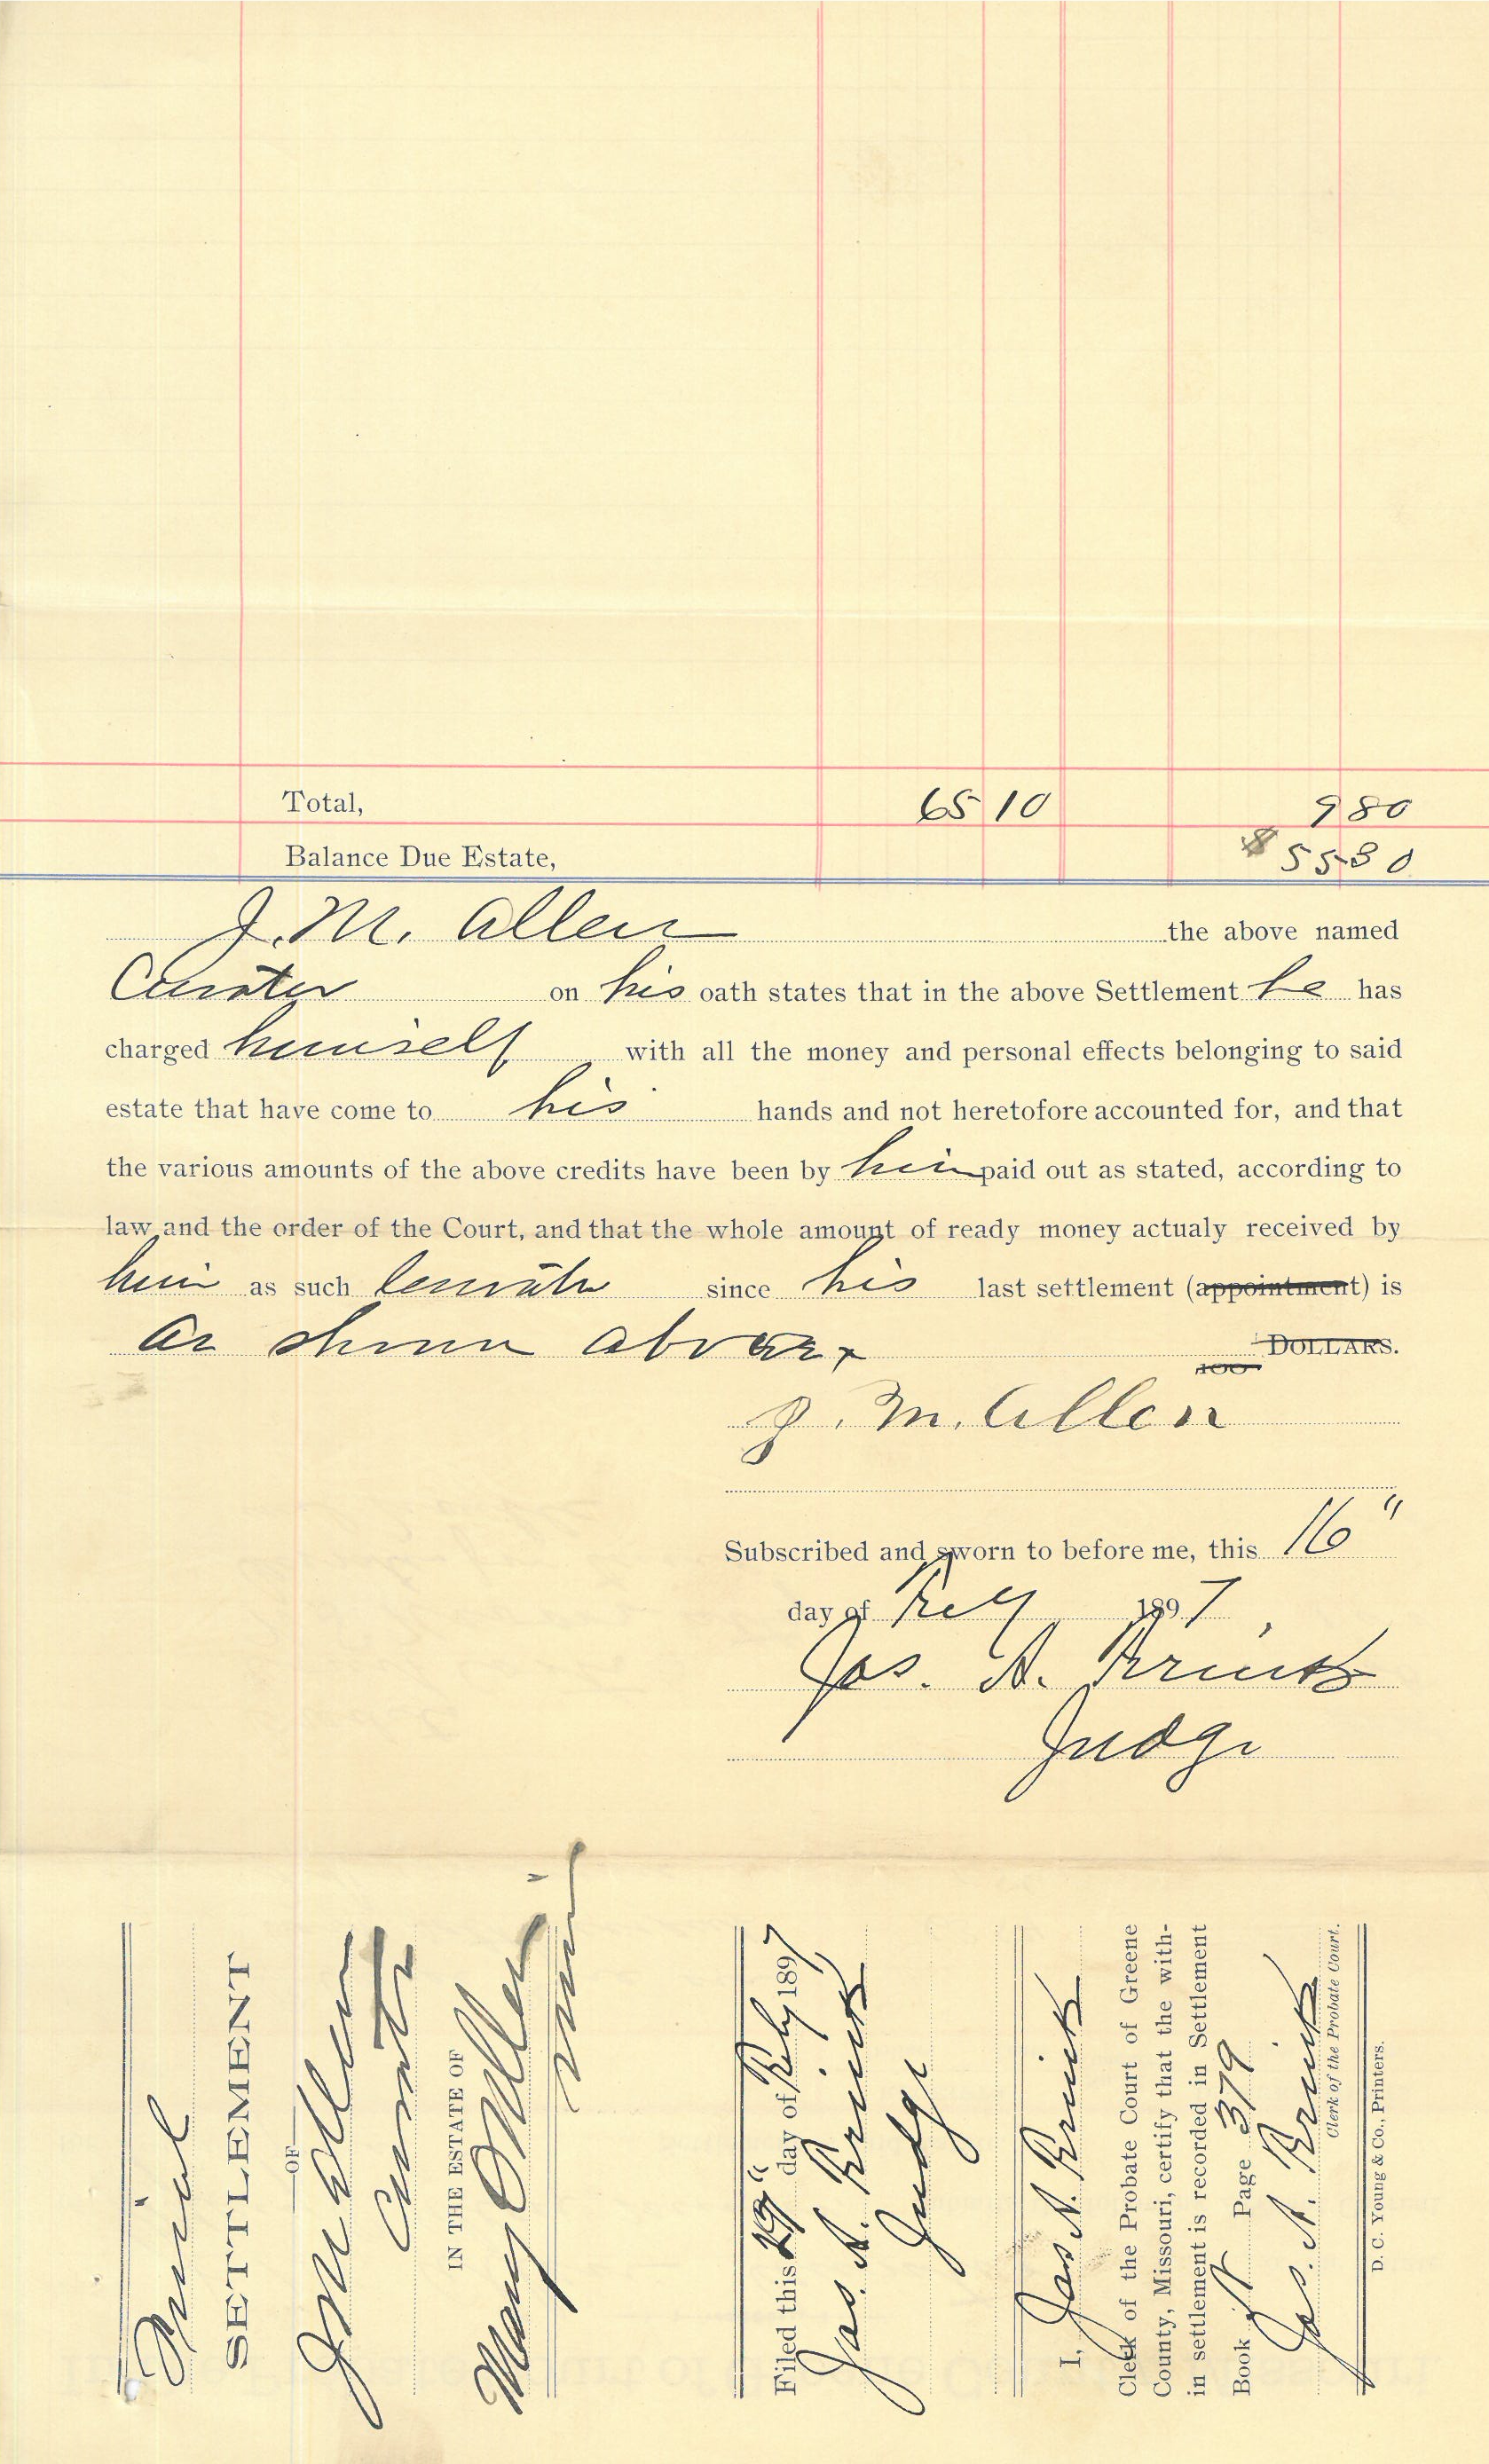 Total, 65 10 9 80
Balance Due Estate, $ 55 30
J. M. Allen the above named
Curator on his oath states that in the above Settlement he has
charged himself with all the money and personal effects belonging to said
estate that have come to his hands and not heretofore accounted for, and that
the various amounts of the above credits have been by him paid out as stated, according to
law and the order of the Court, and that the whole amount of ready money actualy received by
him as such Curator since his last settlement (appointment) is
as shown above. DOLLARS.
100
J. M. Allen
Subscribed and sworn to before me, this 16"
day of Feby 1897,
Jas. A.
Judge
Final
SETTLEMENT
OF
J M Allen
Curator
IN THE ESTATE OF
Mary
minor
Filed this day of Feby 1897
Jas. A.
Judge
I, Jas A.
Clerk of the Probate Court of Greene
County, Missouri, certify that the with-
in settlement is recorded in Settlement
Book Page 379
Jas. A.
Clerk of the Probate Court.
D. C. Young & Co., Printers.